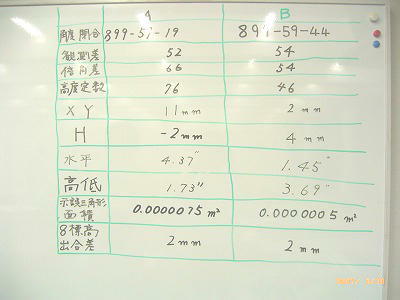 A B
角度閉合 899-59-19 899-59-44
観測差 52 54
倍角差 66 54
高度定数 76 46
X Y 11mm 2mm
H -2mm 4mm
水平 4.37" 1.45"
高低 1.73" 3.69"
示誤三角形面積 0.0000075m² 0.0000005m²
8標高
出合差 2mm 2mm